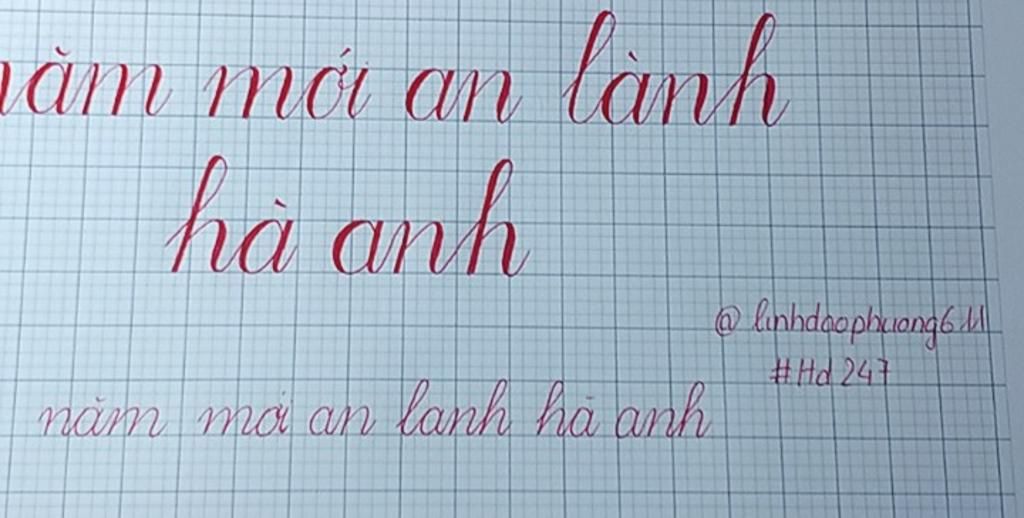 năm mới an lành
hà anh
@ linhdaophuong611
#Hd 247
năm mới an lanh hà anh